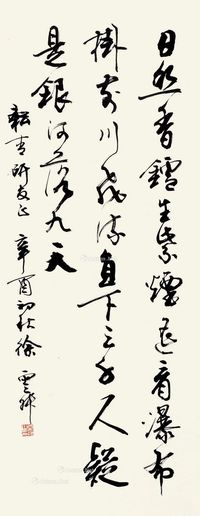 日照香鑪生紫煙遙看瀑布
掛前川飛流直下三千尺疑
是銀河落九天
耘青研友正 辛酉初秋徐雲叔